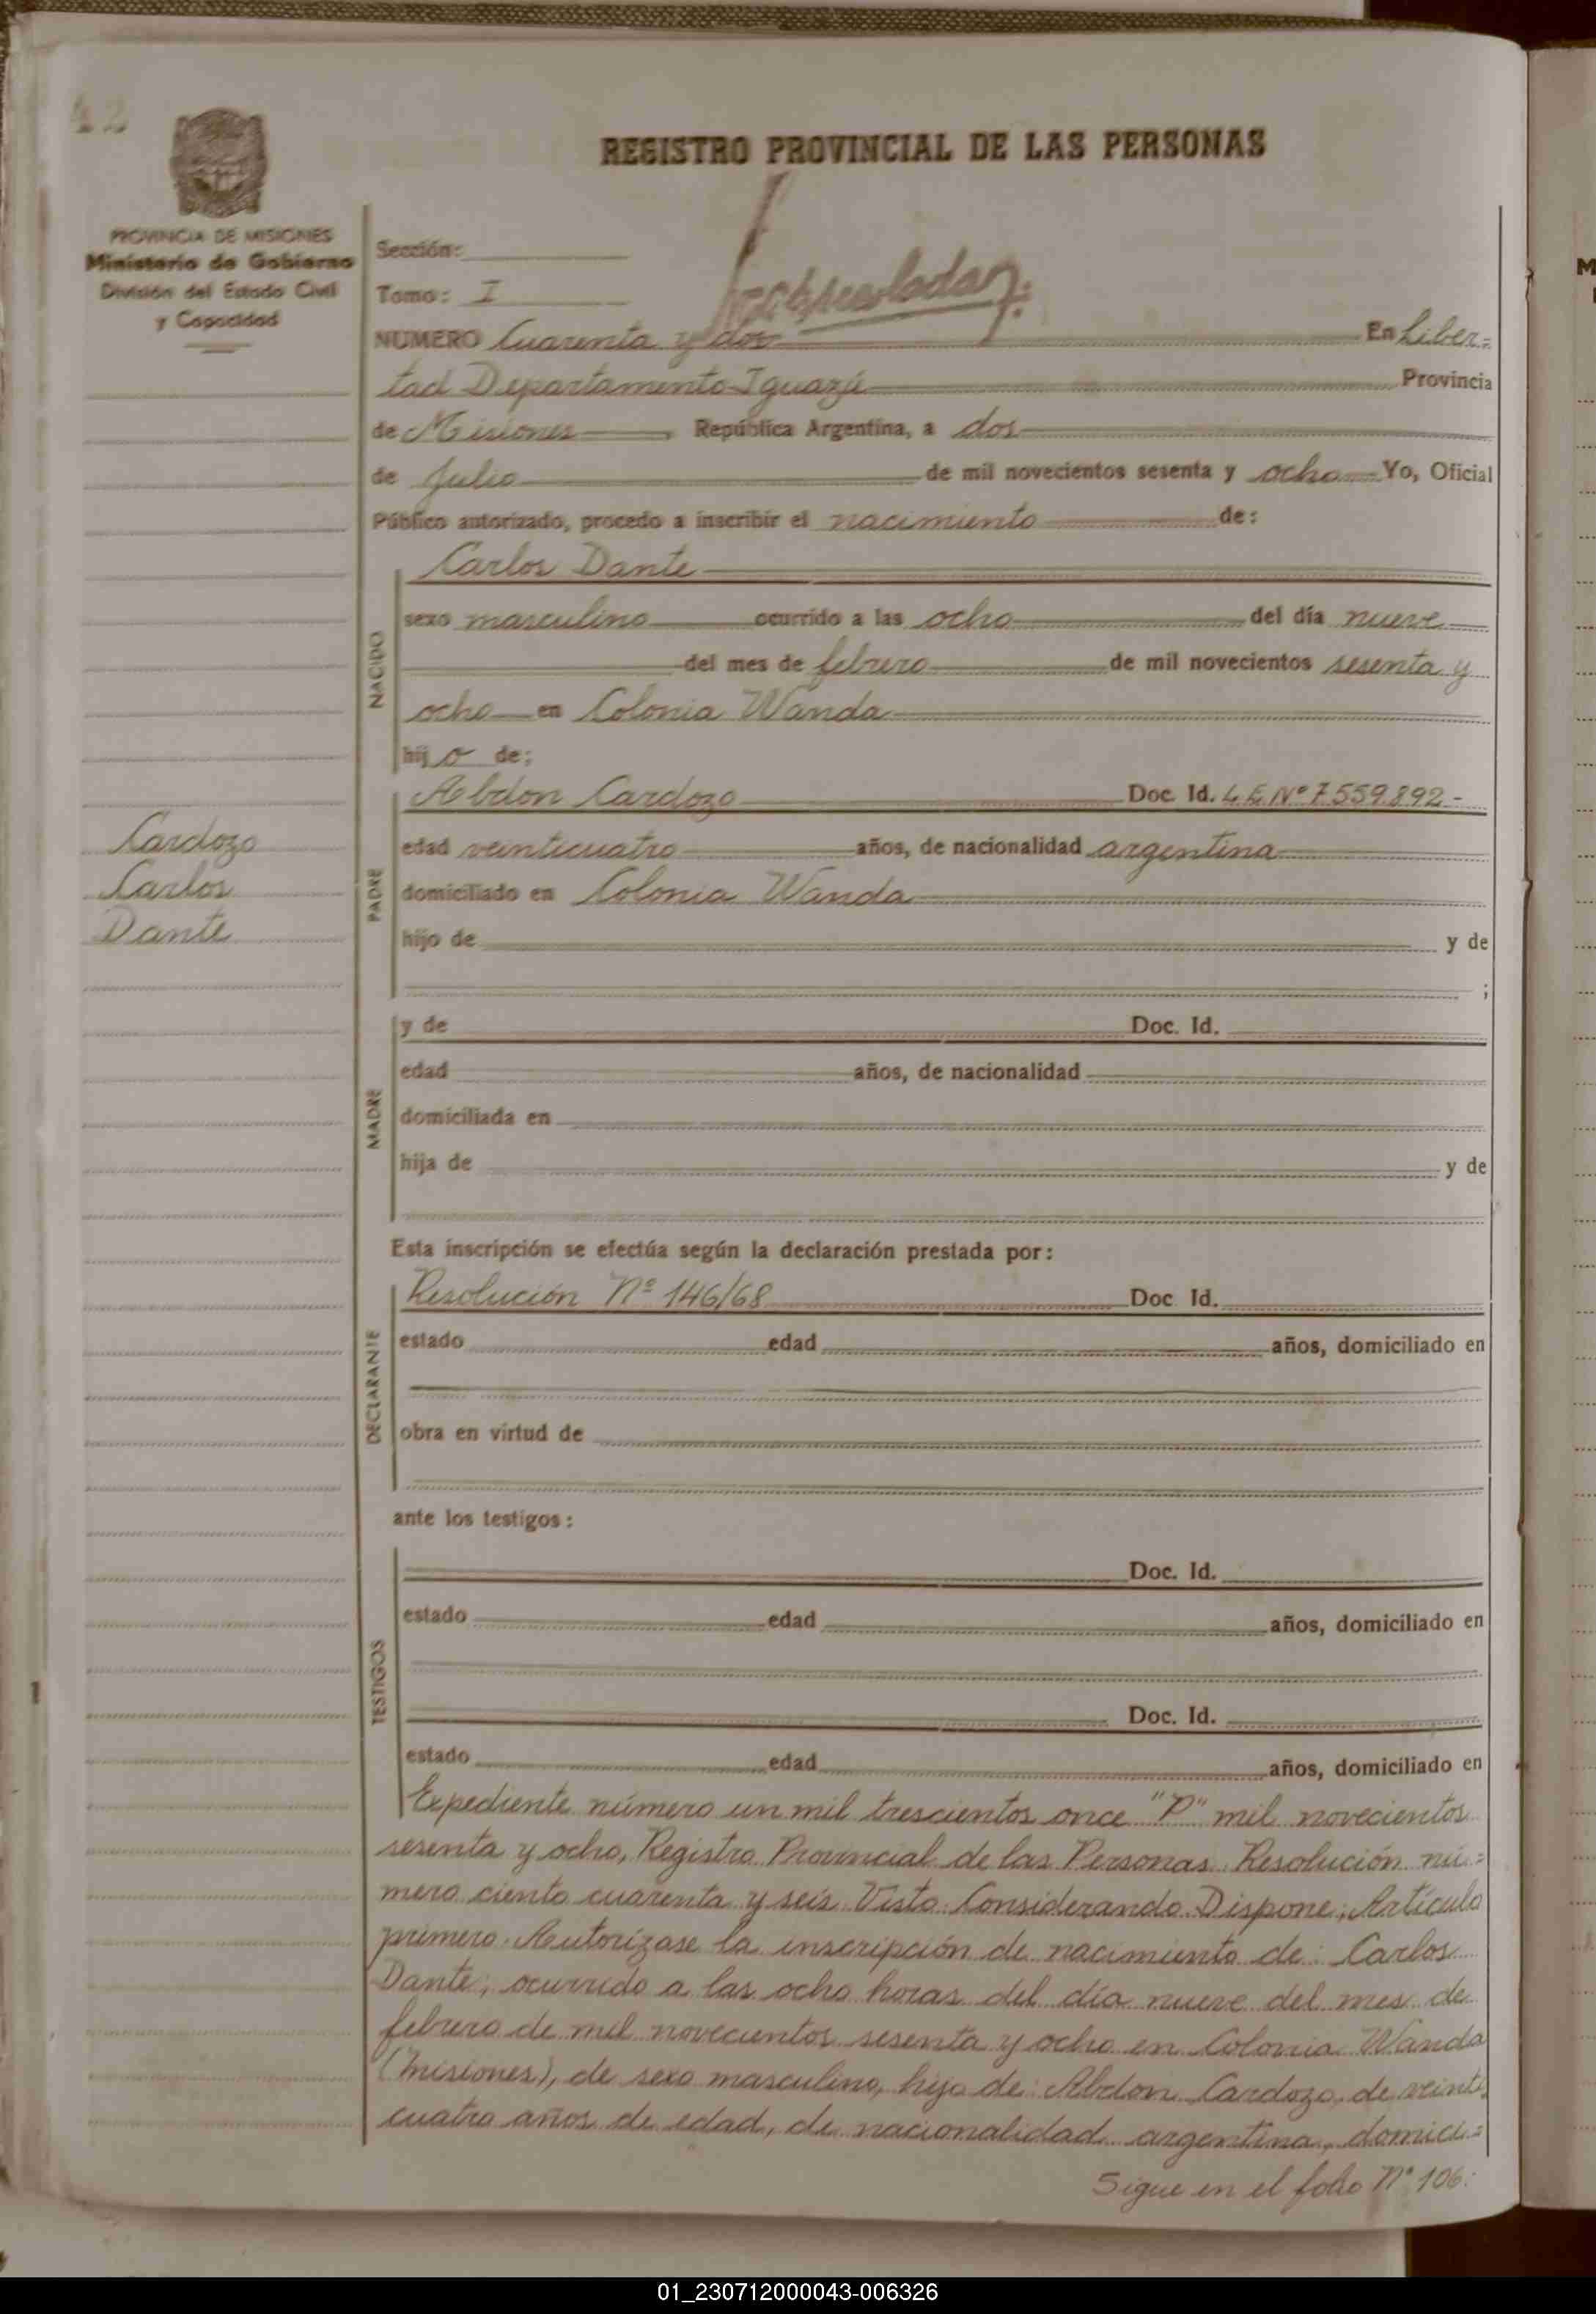 42
REGISTRO PROVINCIAL DE LAS PERSONAS
PROVINCIA DE MISIONES
Ministerio de Gobierno
División del Estado Civil
y Capacidad
Sección:
Tomo: I
NUMERO Cuarenta y dos En Liber=
tad Departamento Iguazú Provincia
de Misiones República Argentina, a dos
de Julio de mil novecientos sesenta y ocho Yo, Oficial
Público autorizado, procedo a inscribir el nacimiento de:
NACIDO
Carlos Dante
sexo masculino ocurrido a las ocho del día nueve
del mes de febrero de mil novecientos sesenta y
ocho en Colonia Wanda
hijo de;
PADRE
Abdon Cardozo Doc. Id. L.E. Nº 7.559.892-
edad veinticuatro años, de nacionalidad argentina
domiciliado en Colonia Wanda
hijo de y de
;
Cardozo
Carlos
Dante
MADRE
y de Doc. Id.
edad años, de nacionalidad
domiciliada en
hija de y de
Esta inscripción se efectúa según la declaración prestada por:
DECLARANTE
Resolución Nº 146/68 Doc. Id.
estado edad años, domiciliado en
obra en virtud de
ante los testigos:
TESTIGOS
Doc. Id.
estado edad años, domiciliado en
Doc. Id.
estado edad años, domiciliado en
Expediente número un mil trescientos once "P" mil novecientos
sesenta y ocho, Registro Provincial de las Personas. Resolución nú=
mero ciento cuarenta y seis. Visto. Considerando. Dispone; Artículo
primero. Autorízase la inscripción de nacimiento de: Carlos
Dante; ocurrido a las ocho horas del día nueve del mes de
febrero de mil novecientos sesenta y ocho en Colonia Wanda
(Misiones), de sexo masculino, hijo de: Abdon Cardozo, de veinti
cuatro años de edad, de nacionalidad argentina, domici=
Sigue en el folio Nº 106.
01_230712000043-006326